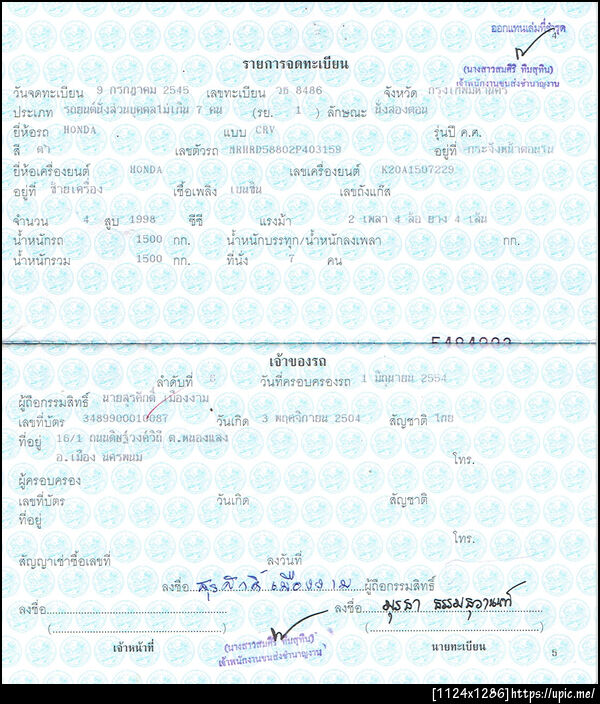 ออกแทนเล่มที่ชำรุด
(นางสาวสมศิริ ทิมสุทิน)
เจ้าพนักงานขนส่งชำนาญงาน
รายการจดทะเบียน
วันจดทะเบียน 9 กรกฎาคม 2545 เลขทะเบียน วธ 8486 จังหวัด กรุงเทพมหานคร
ประเภท รถยนต์นั่งส่วนบุคคลไม่เกิน 7 คน (รย. 1 ) ลักษณะ นั่งสองตอน
ยี่ห้อรถ HONDA แบบ CRV รุ่นปี ค.ศ.
สี ดำ เลขตัวรถ MRHRD58802P403159 อยู่ที่ กระจังหน้าตอนใน
ยี่ห้อเครื่องยนต์ HONDA เลขเครื่องยนต์ K20A1507229
อยู่ที่ ซ้ายเครื่อง เชื้อเพลิง เบนซิน เลขถังแก๊ส
จำนวน 4 สูบ 1998 ซีซี แรงม้า 2 เพลา 4 ล้อ ยาง 4 เส้น
น้ำหนักรถ 1500 กก. น้ำหนักบรรทุก/น้ำหนักลงเพลา กก.
น้ำหนักรวม 1500 กก. ที่นั่ง 7 คน
เจ้าของรถ
ลำดับที่ 6 วันที่ครอบครองรถ 1 มิถุนายน 2554
ผู้ถือกรรมสิทธิ์ นายสุรศักดิ์ เมืองงาม
เลขที่บัตร 3489900010087 วันเกิด 3 พฤศจิกายน 2504 สัญชาติ ไทย
ที่อยู่ 16/1 ต.หนองแสง
อ.เมือง นครพนม โทร.
ผู้ครอบครอง
เลขที่บัตร วันเกิด สัญชาติ
ที่อยู่
โทร.
สัญญาเช่าซื้อเลขที่ ลงวันที่
ลงชื่อ สุรศักดิ์ เมืองงาม ผู้ถือกรรมสิทธิ์
ลงชื่อ ลงชื่อ
( ) ( )
เจ้าหน้าที่ (นางสาวสมศิริ ทิมสุทิน) นายทะเบียน
เจ้าพนักงานขนส่งชำนาญงาน
5
[1124x1286]https://upic.me/